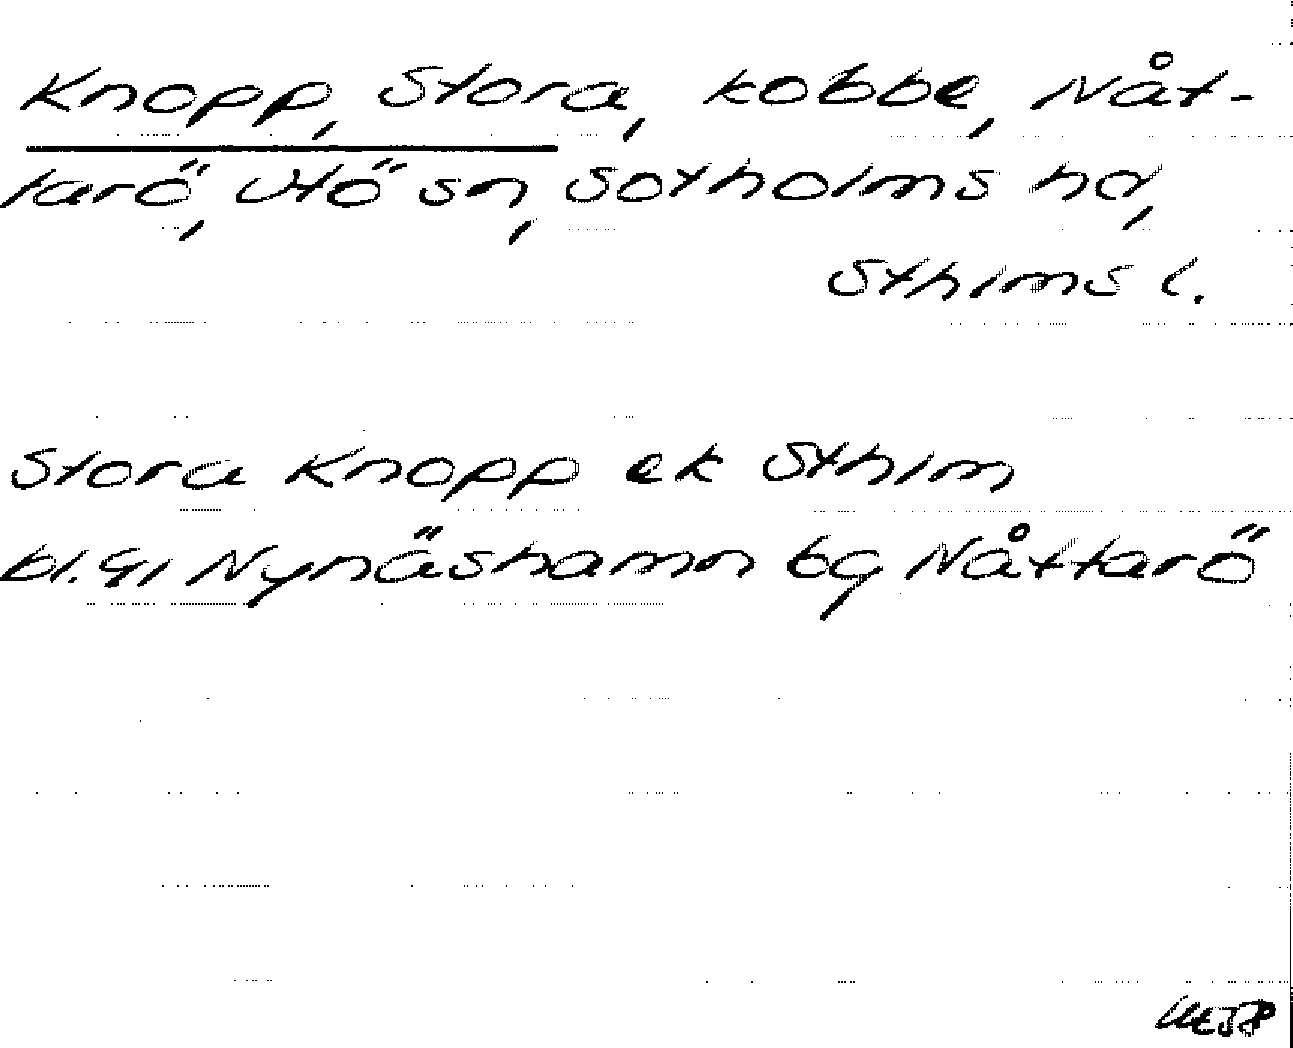 Knopp, Stora, kobbe, Nåt-
tarö, Utö sn, Sotholms hd,
Sthlms l.
Stora Knopp ek Sthlm
bl. 91 Nynäshamn bg Nåttarö